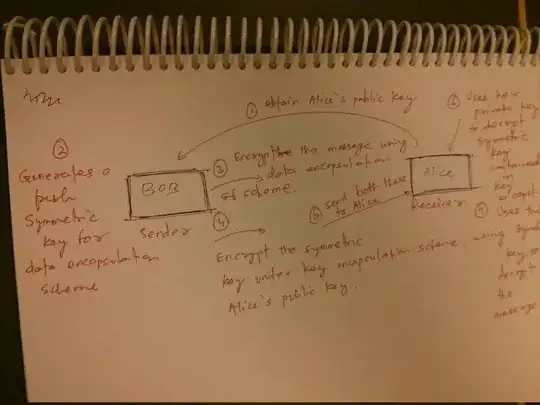 ① obtain Alice's public key
②
Generates a
fresh
symmetric
key for
data encapsulation
scheme
BOB
Sender
③ Encrypt the message using
data encapsulation
scheme.
④
Encrypt the symmetric
key under key encapsulation scheme, using
Alice's public key.
⑤ send both these
to Alice
Alice
Receiver
⑥ Uses her
private key
to decrypt
symmetric
key
contained
in
key
⑦ Uses
key
decrypt
the
message